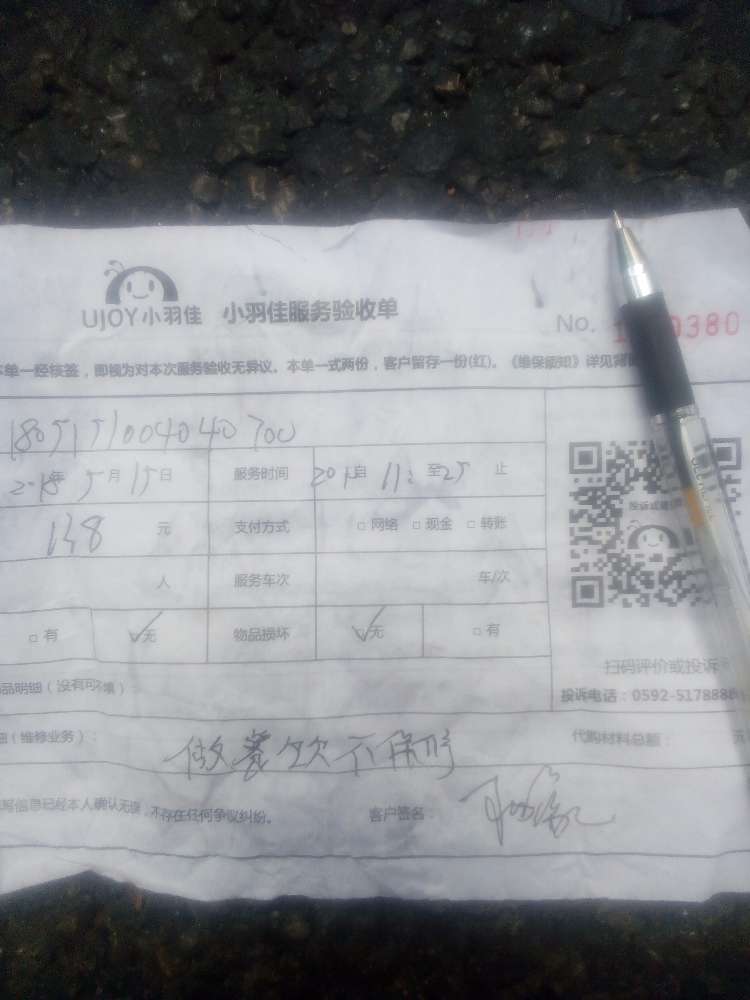 UJOY小羽佳 小羽佳服务验收单
No. 0380
本单一经核签，即视为对本次服务验收无异议。本单一式两份，客户留存一份(红)。《维保须知》详见背
1805151004040700
2018年5月15日 服务时间 自11: 至25 止
138元 支付方式 □网络 □现金 □转账
人 服务车次 车/次
□有 □无 物品损坏 □无 □有
扫码评价或投诉
品明细（没有可不填）：
投诉电话：0592-5178888
（维修业务）： 不保修 代购材料总额： 元
写信息已经本人确认无误，不存在任何争议纠纷。 客户签名：